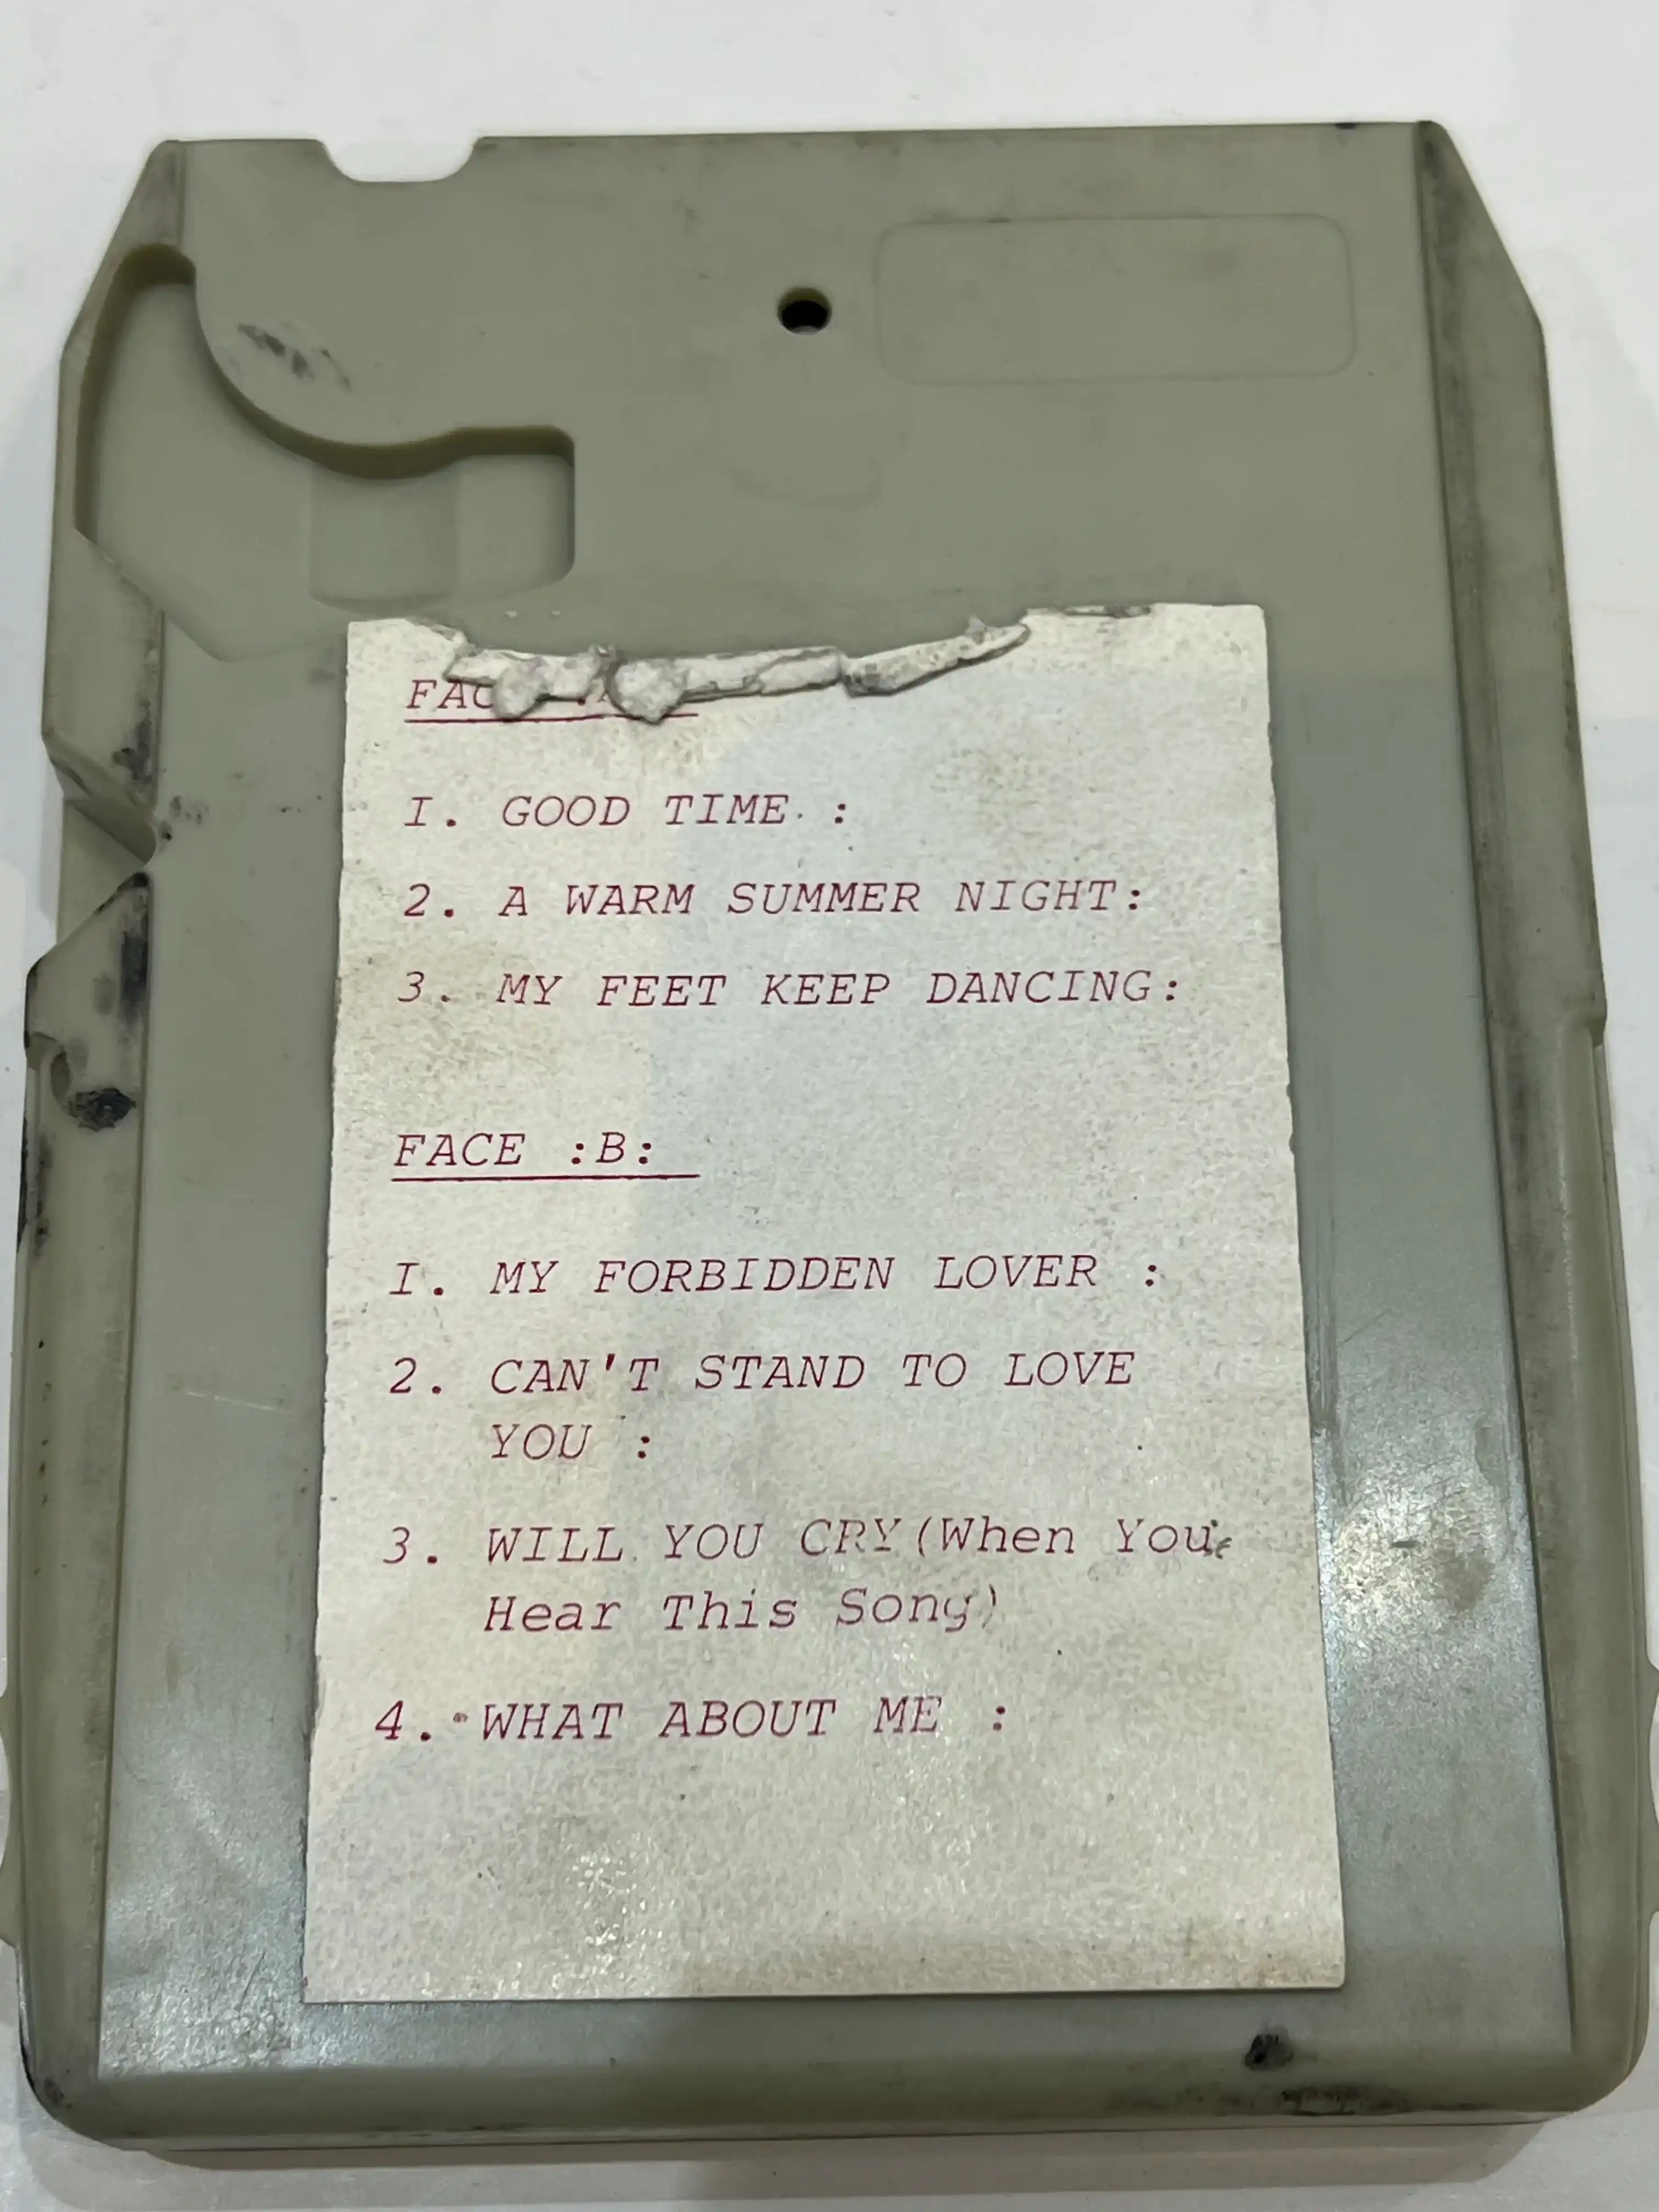 I. GOOD TIME. :
2. A WARM SUMMER NIGHT:
3. MY FEET KEEP DANCING:
FACE :B:
I. MY FORBIDDEN LOVER :
2. CAN'T STAND TO LOVE
YOU :
3. WILL YOU CRY(When You
Hear This Song)
4. WHAT ABOUT ME :